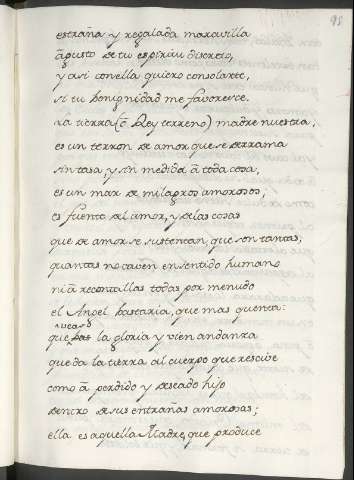 95
estraña y regalada maravilla
ā gusto de tu espiritu discreto,
y asi con ella quiero consolarte,
si tu benignidad me favorece.
La tierra (ō Rey terreno) madre nuestra,
es un terron de amor que se derrama
sin tasa y sin medida ā toda cosa,
es un mar de milagros amorosos,
es fuente del amor, y de las cosas
que de amor se sustentan, que son tantas,
quantas no caven en sentido humano
ni ā recontallas todas por menudo
el Angel bastaria, que mas quenta:
que la gloria y vien andanza
que da la tierra al cuerpo que rescive
como ā perdido y deseado hijo
dentro de sus entrañas amorosas;
ella es aquella Madre, que produce